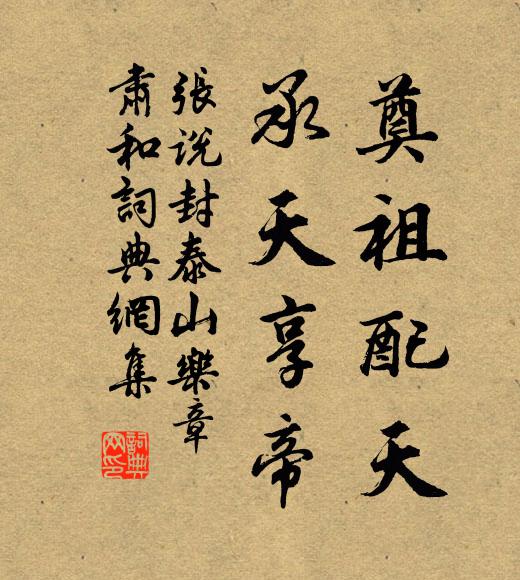 奠祖配天
承天享帝
張説封泰山樂章
肅和詞典網集
詞典網印